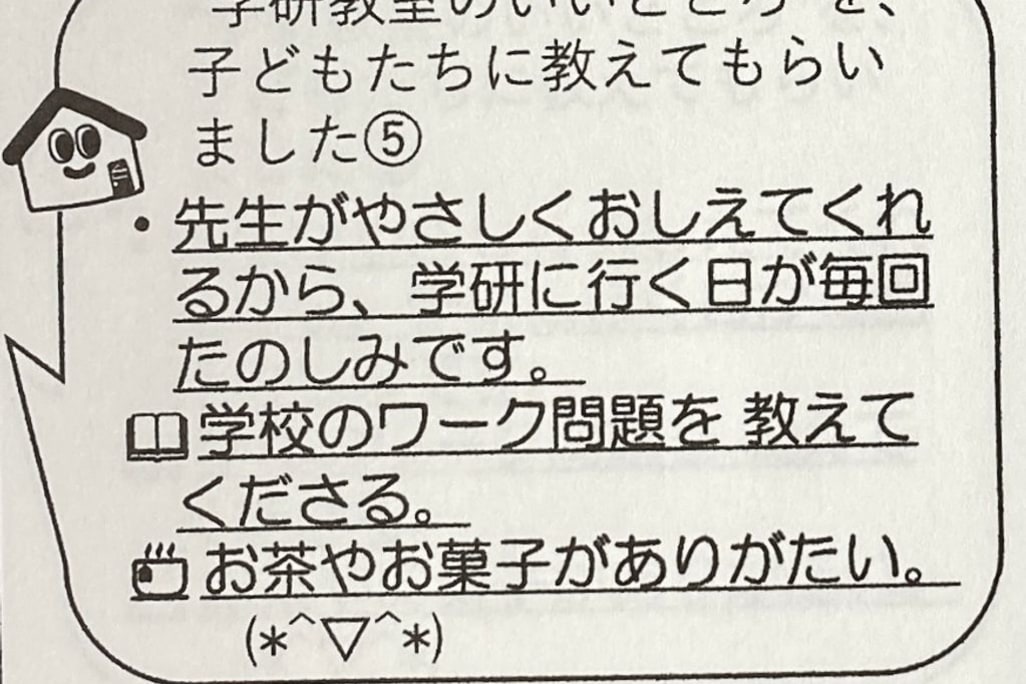 学研教室のいいところ を、
子どもたちに教えてもらい
ました⑤
・先生がやさしくおしえてくれ
るから、学研に行く日が毎回
たのしみです。
学校のワーク問題を 教えて
くださる。
お茶やお菓子がありがたい。
(*^▽^*)